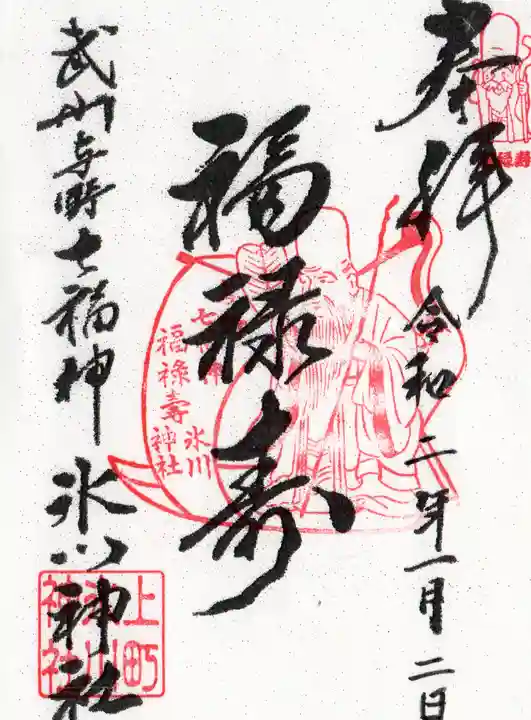 奉拝
令和二年一月二日
福禄寿
武州与野七福神
氷川神社
福禄寿
七福神
福祿壽
氷川
神社
上町
氷川
神社